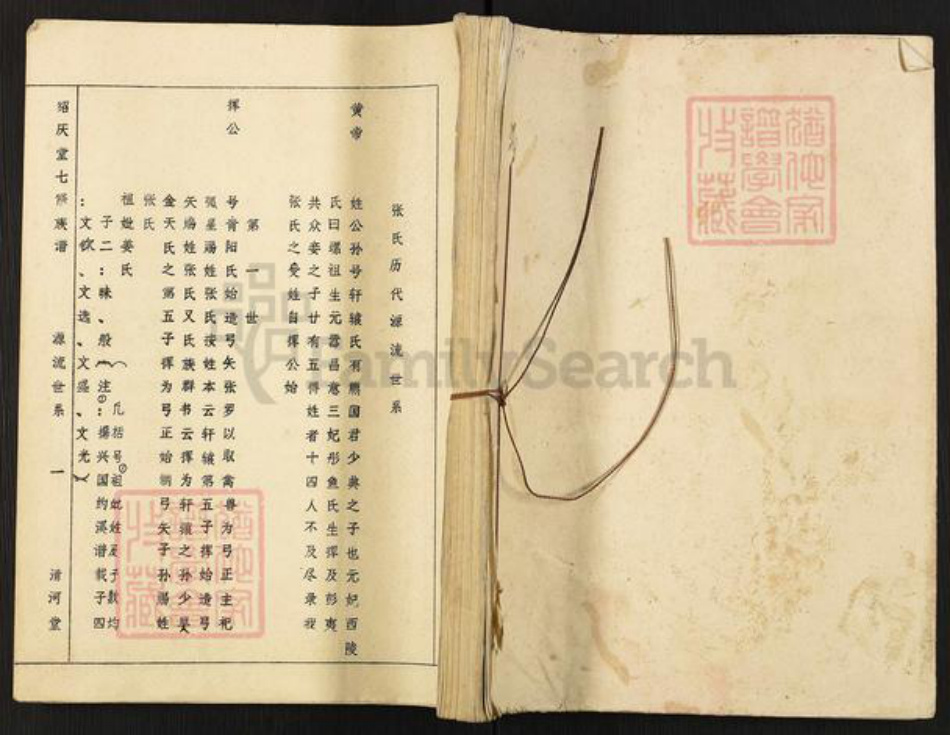 张氏历代源流世系
黄帝
姓公孙号轩辕氏有熊国君少典之子也元妃西陵
氏曰嫘祖生元嚣昌意三妃彤鱼氏生挥及彭夷
共众妾之子廿有五得姓者十四人不及尽录我
张氏之受姓自挥公始
第一世
挥公
号青阳氏始造弓矢张罗以取禽兽为弓正主祀
弧星赐姓张氏按姓本云轩辕第五子挥始造弓
矢赐姓张氏又氏族群书云挥为轩辕之孙少昊
金天氏之第五子挥为弓正始制弓矢子孙赐姓
张氏
祖妣姜氏
子二：昧、般（注：
凡括号祖妣姓及子数均
据兴国约溪谱载子四
：文钦、文选、文盛、文光）
绍庆堂七修族谱 源流世系 一 清河堂
犹他家谱学会收藏
犹他家谱学会收藏
FamilySearch